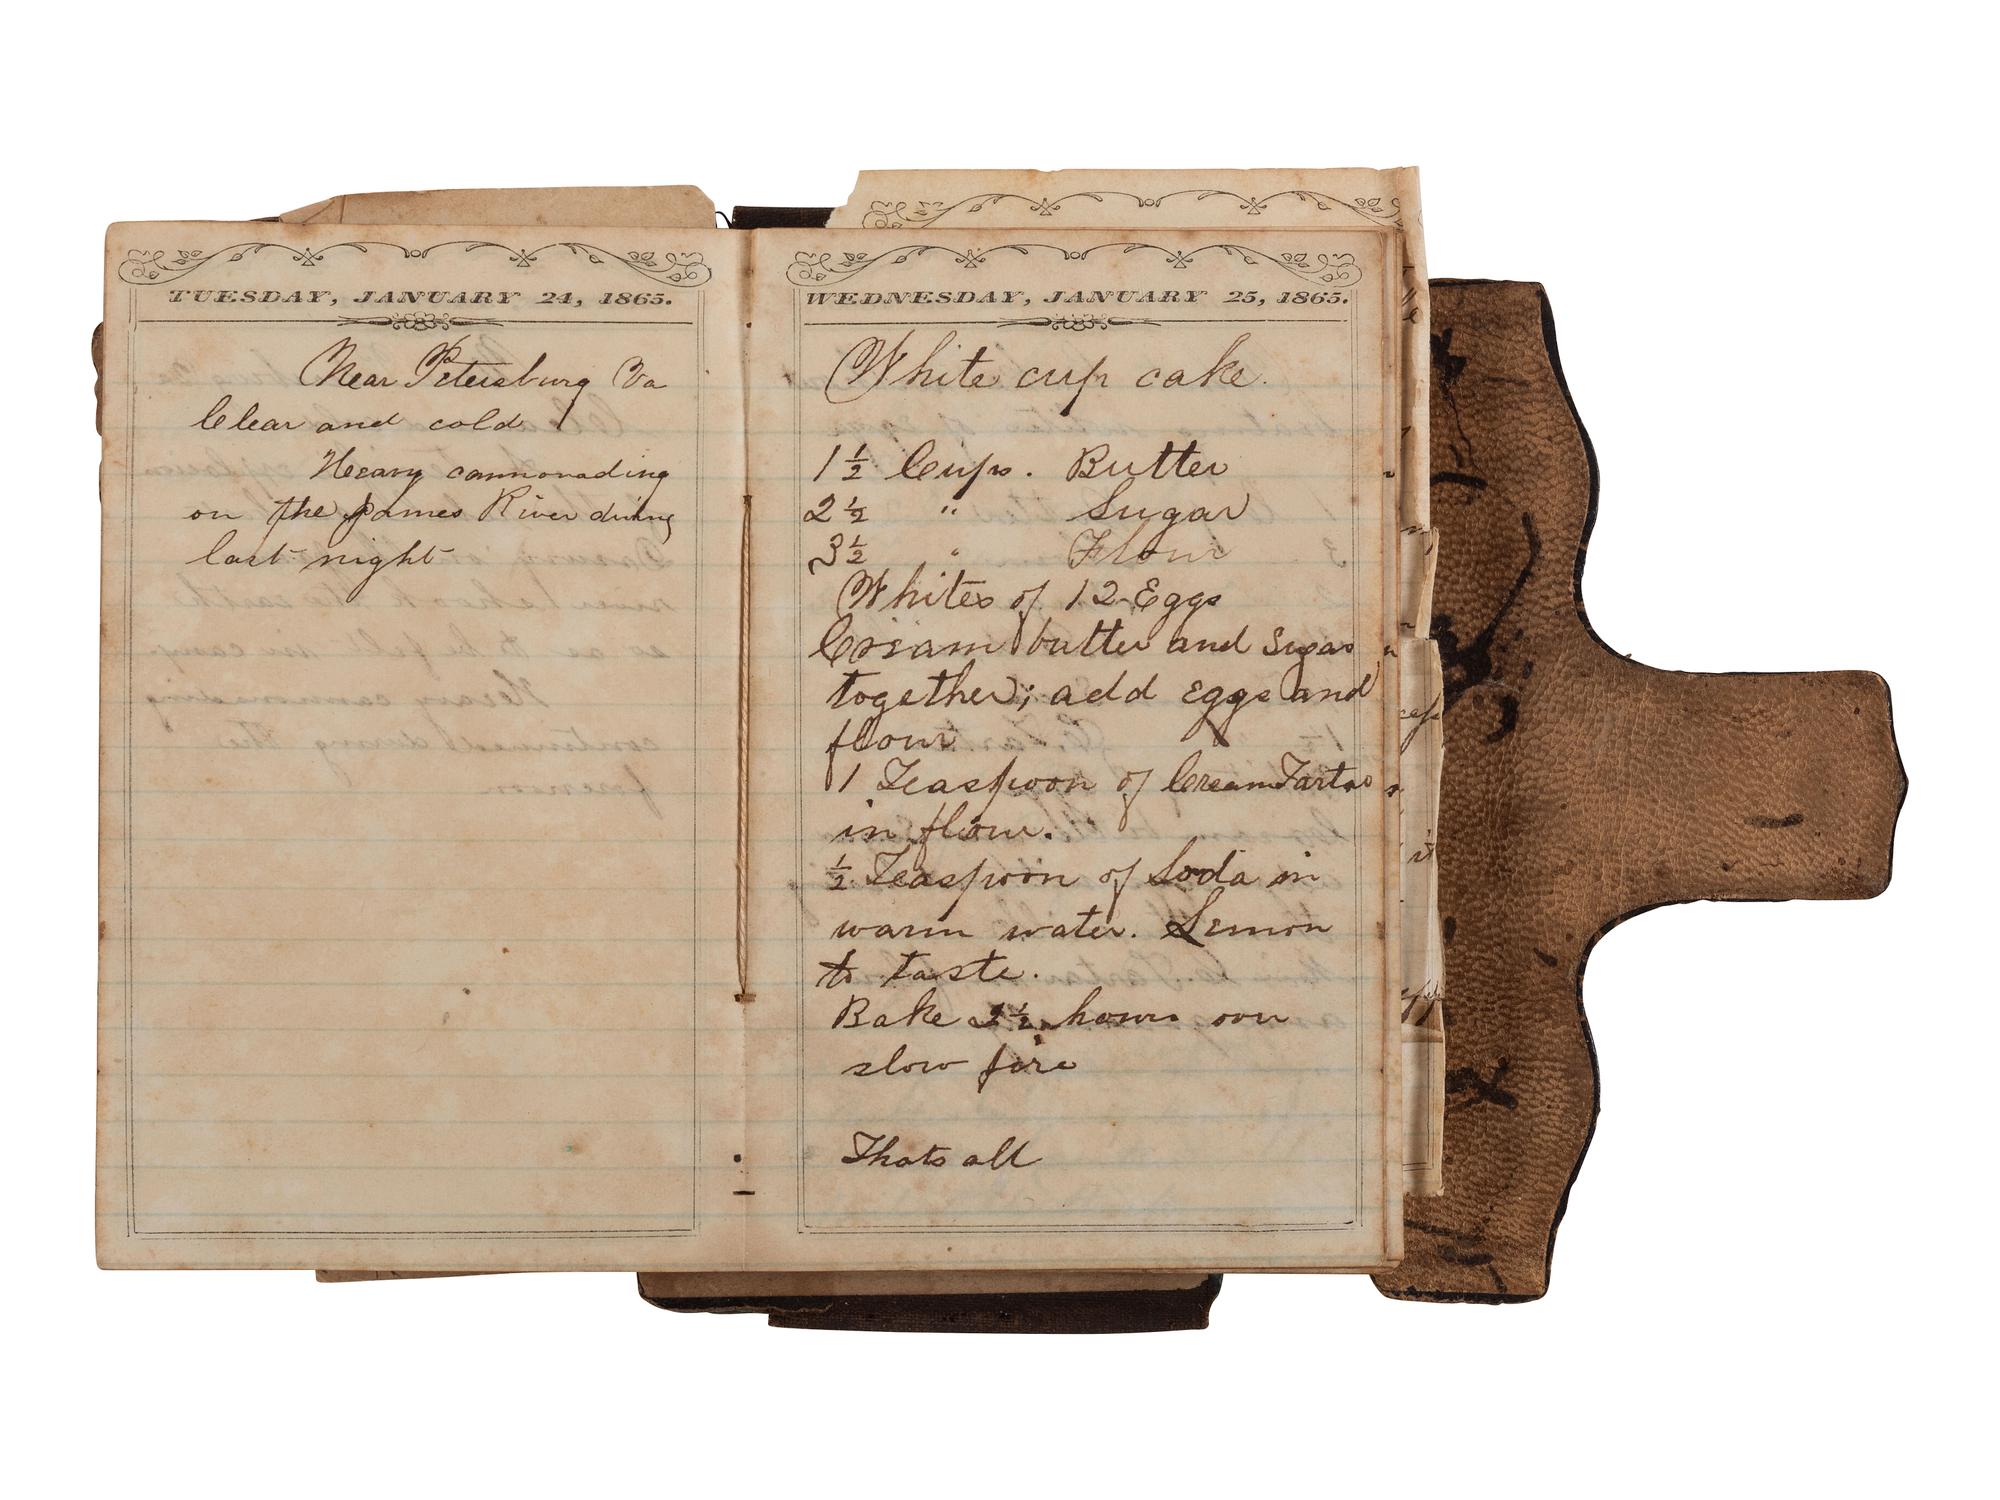 TUESDAY, JANUARY 24, 1865.
Near Petersburg Va
Clear and cold
Heavy cannonading
on the James River during
last night
WEDNESDAY, JANUARY 25, 1865.
White cup cake.
1 1/2 Cups. Butter
2 1/2 " Sugar
3 1/2 " Flour
Whites of 12 Eggs
Cream butter and Sugar
together; add Eggs and
flour
1 Teaspoon of Cream Tartar
in flour.
1/2 Teaspoon of Soda in
warm water. Lemon
to taste.
Bake 2 1/2 hours over
slow fire
Thats all